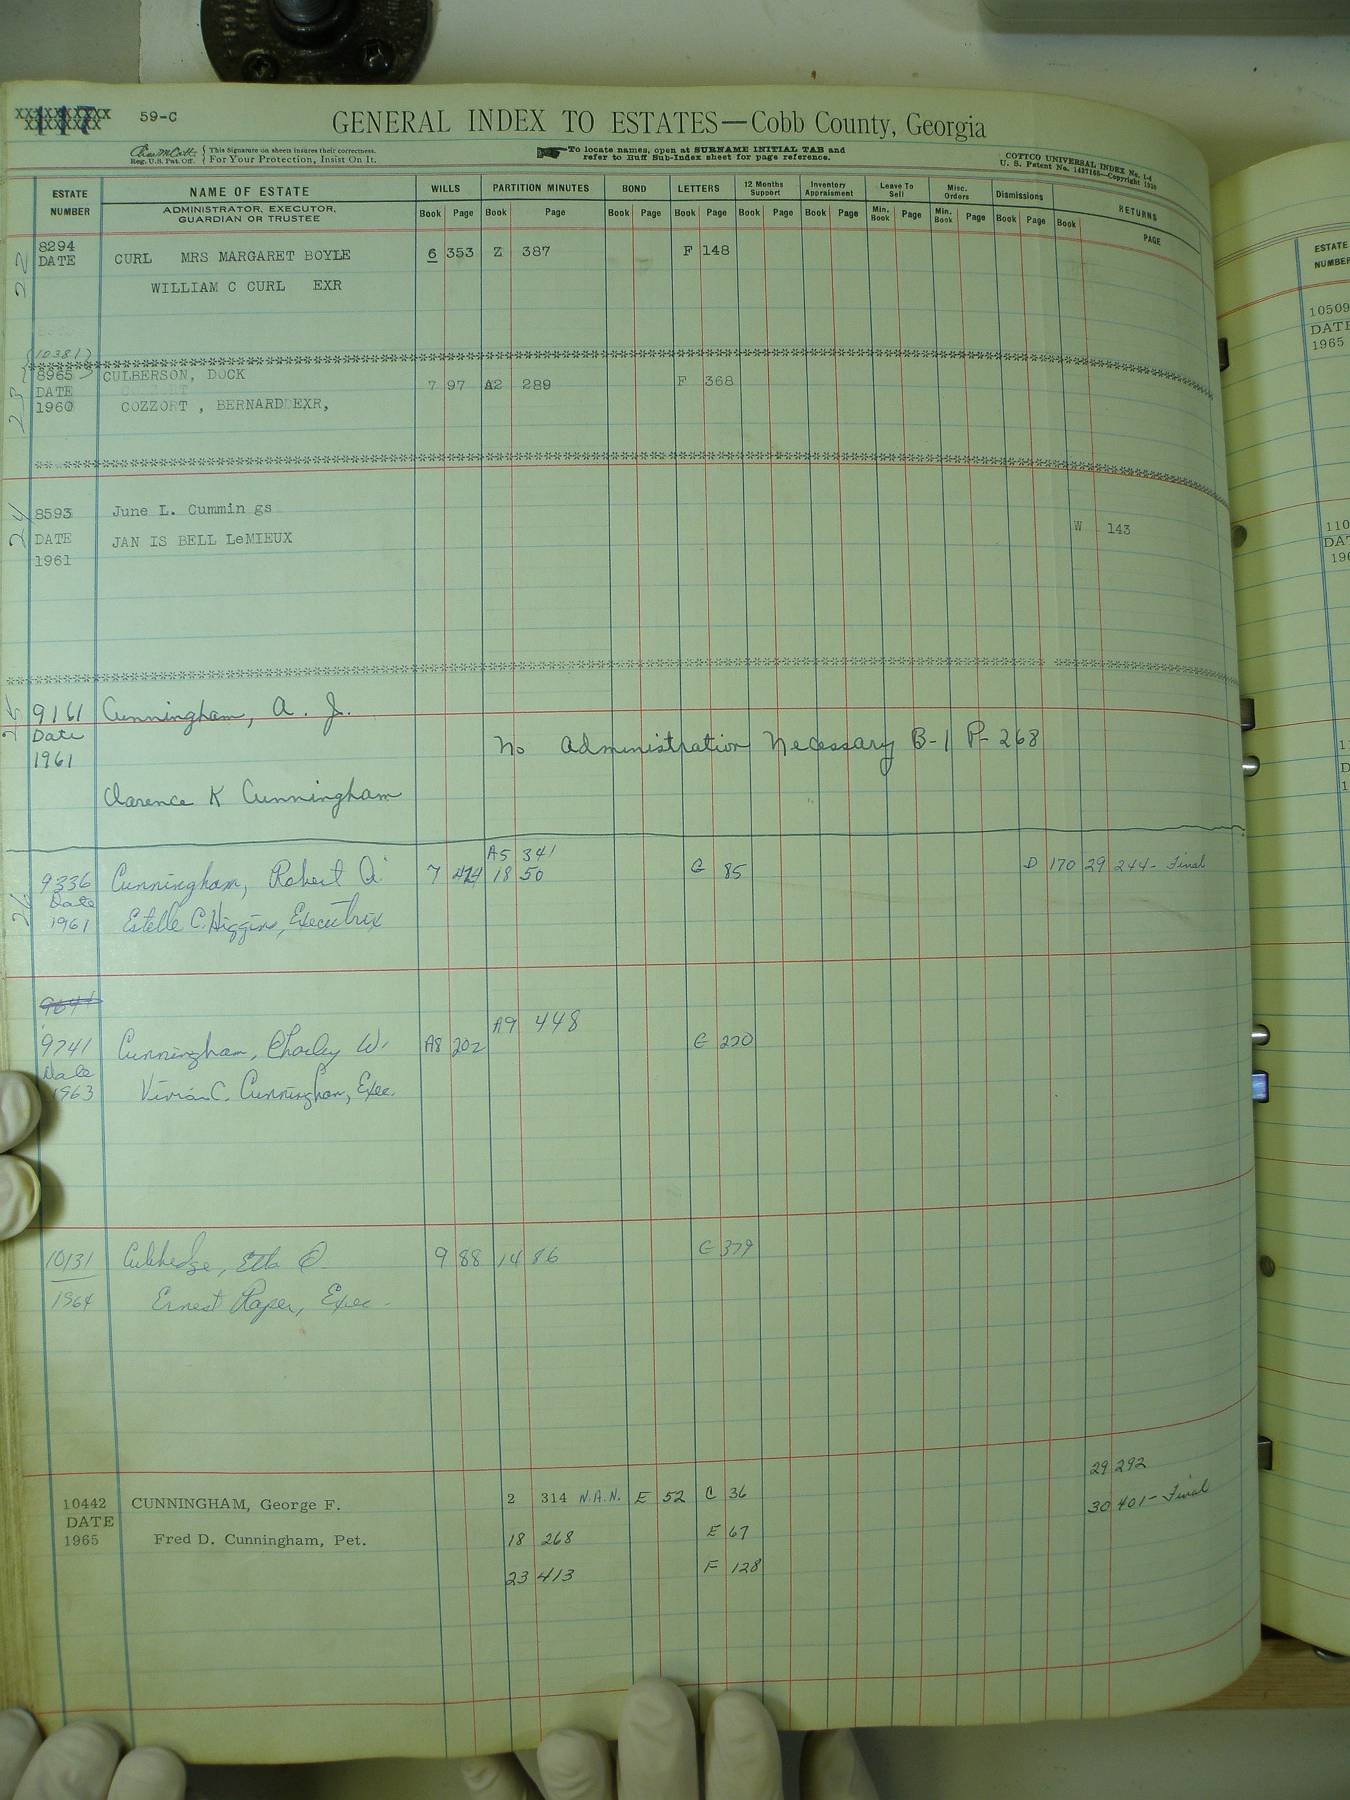 117 59-C GENERAL INDEX TO ESTATES—Cobb County, Georgia
Reg. U.S. Pat. Off. This Signature on sheets insures their correctness. For Your Protection, Insist On It.
To locate names, open at SURNAME INITIAL TAB and
refer to Buff Sub-Index sheet for page reference.
COTTCO UNIVERSAL INDEX No. 1-4
U. S. Patent No. 1437165—Copyright 1930
ESTATE NUMBER NAME OF ESTATE WILLS PARTITION MINUTES BOND LETTERS 12 Months Support Inventory Appraisment Leave To Sell Misc. Orders Dismissions RETURNS
ADMINISTRATOR, EXECUTOR, GUARDIAN OR TRUSTEE Book Page Book Page Book Page Book Page Book Page Book Page Min. Book Page Min. Book Page Book Page Book PAGE
22 8294 CURL MRS MARGARET BOYLE 6 353 Z 387 F 148
DATE
WILLIAM C CURL EXR
(10381)
23 8965 CULBERSON, DOCK 7 97 A2 289 F 368
DATE
1960 COZZORT , BERNARD EXR,
24 8593 June L. Cummin gs W 143
DATE JAN IS BELL LeMIEUX
1961
25 9161 Cunningham, A. J.
Date No Administration Necessary B-1 P-268
1961
Clarence K Cunningham
A5 341
26 9336 Cunningham, Robert 7 424 18 50 G 85 D 170 29 244- Final
Date
1961 Estelle C. Higgins, Executrix
A9 448
9741 Cunningham, Charley W. A8 202 G 220
Date
1963 Vivian C. Cunningham, Exec.
10131 Etta O. 9 88 14 86 G 379
1964 Ernest Raper, Exec.
29 292
10442 CUNNINGHAM, George F. 2 314 N.A.N. E 52 C 36 30 401- Final
DATE
1965 Fred D. Cunningham, Pet. 18 268 E 67
23 413 F 128
ESTATE
NUMBER
10509
DATE
1965
110
DAT
196